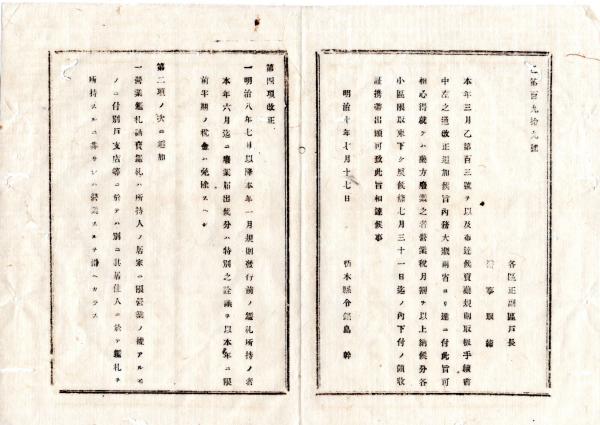 第百九拾九號
各區正副區戶長
事取締
本年三月乙第百三號ヲ以及布達候賣藥規則取扱手續書
中左之通改正追加候旨內務大藏兩省ヨリ達ニ付此旨可
相心得就テハ藥方廢業之者營業稅月割ヲ以上納候分各
小區限取束下ケ戾候條七月三十一日迄ノ內下付ノ領收
証携帶出頭可致此旨相達候事
明治十年七月十七日
木縣令鍋島 幹
第四項改正
一明治八年七月以降本年一月規則發行前ノ鑑札所持ノ者
本年六月迄ニ廢業屆出候分ハ特別之詮議ヲ以本年ニ限
前半期ノ稅金ハ免除スヘシ
第二項ノ次ニ追加
一營業鑑札請賣鑑札ハ所持人ノ居家ニ限營業ノ徵アルモ
ノニ付別戶支店等ニ於テハ別ニ其居住人ニ於テ鑑札ヲ
所持スルニ非サレハ營業スルヲ得ヘカラス